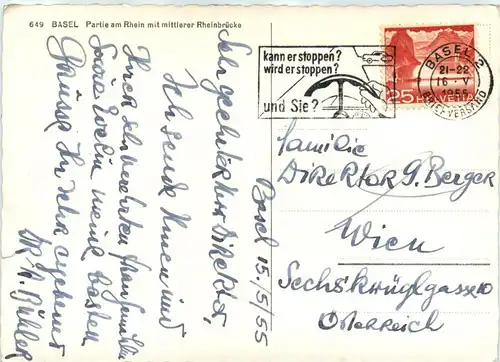 649 BASEL Partie am Rhein mit mittlerer Rheinbrücke
kann er stoppen?
wird er stoppen?
und Sie?
BASEL 2
21-22
16. V.
1955
BRIEFVERSAND
25 HELVETIA
Basel 15/5/55
Sehr geehrter Herr Direktor,
Ich sende Ihnen und
Ihrer sehr verehrten Frau Gemahlin
sowie Evelin meine besten
Grüsse Ihr sehr ergebener
Dr. Bühler
Familie
Direktor G. Berger
Wien
Sechskrüglgasse 10
Österreich